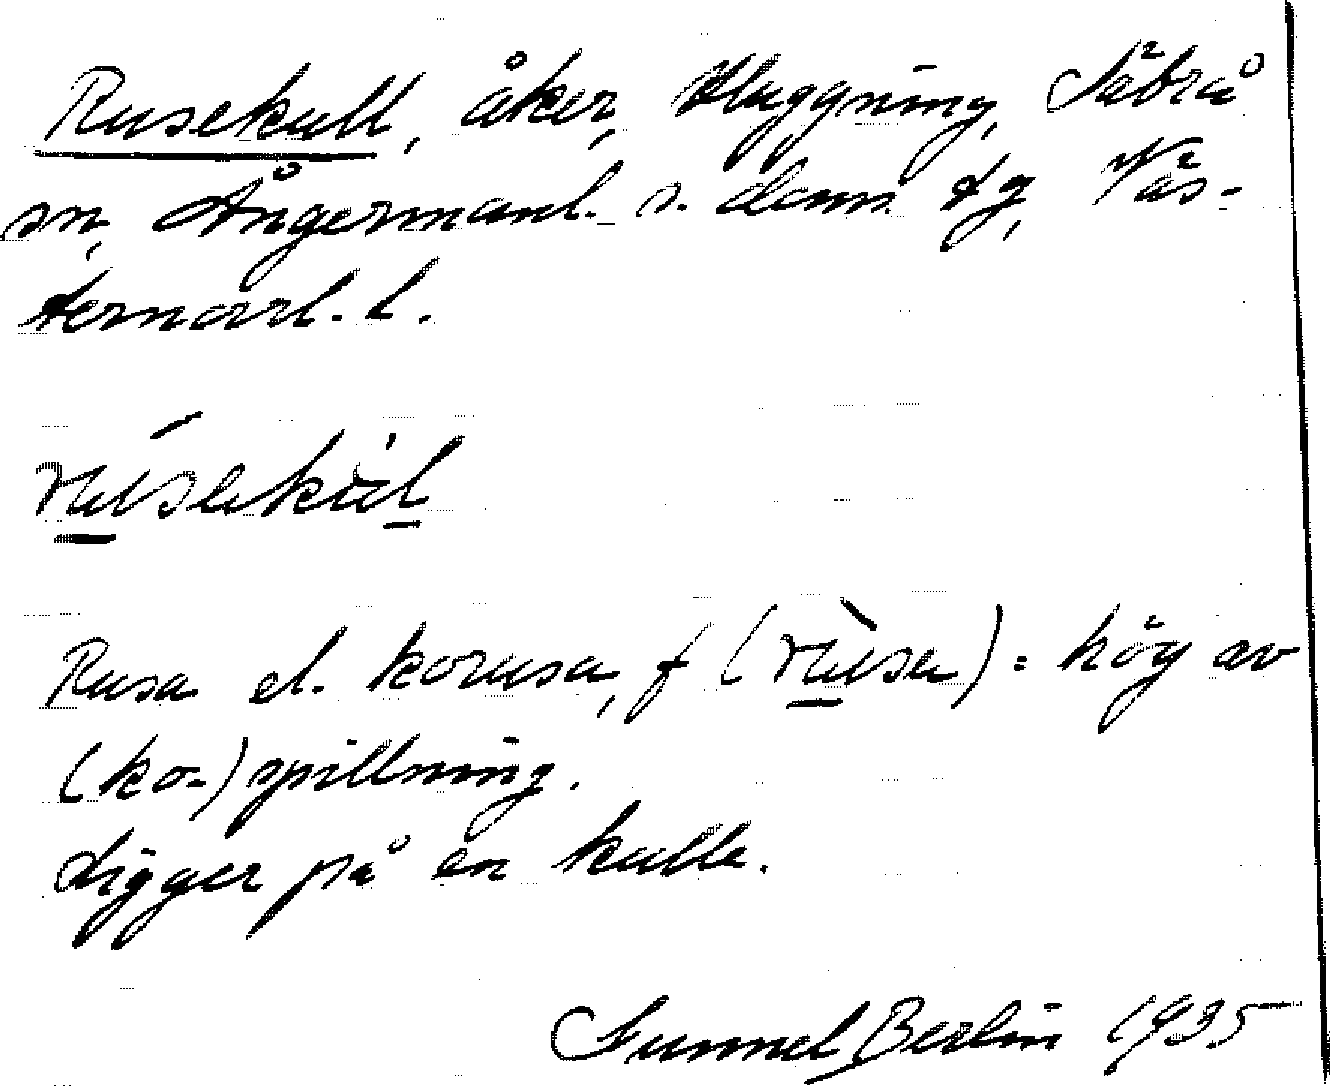 Rusekull, åker, Huggning, Säbrå
sn, Ångermanl. s. dom. tg, Väs-
ternorrl. l.
rusekul
Rusa el. korusa, f (rusa) = hög av
(ko-)spillning.
Ligger på en kulle.
Gunnel Berlin 1935